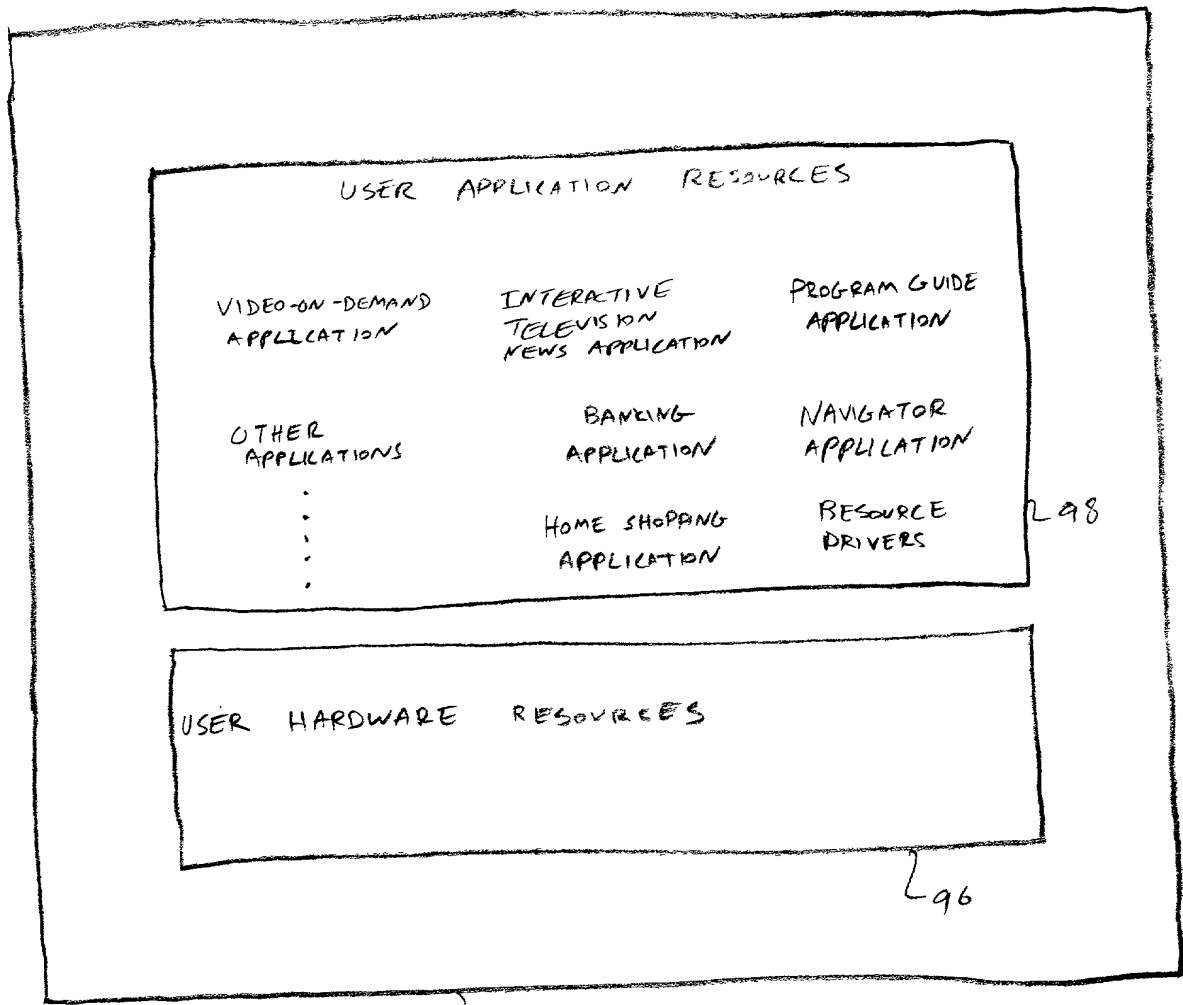 USER APPLICATION RESOURCES
VIDEO-ON-DEMAND
APPLICATION
INTERACTIVE
TELEVISION
NEWS APPLICATION
PROGRAM GUIDE
APPLICATION
OTHER
APPLICATIONS
BANKING
APPLICATION
NAVIGATOR
APPLICATION
HOME SHOPPING
APPLICATION
RESOURCE
DRIVERS
98
USER HARDWARE RESOURCES
96